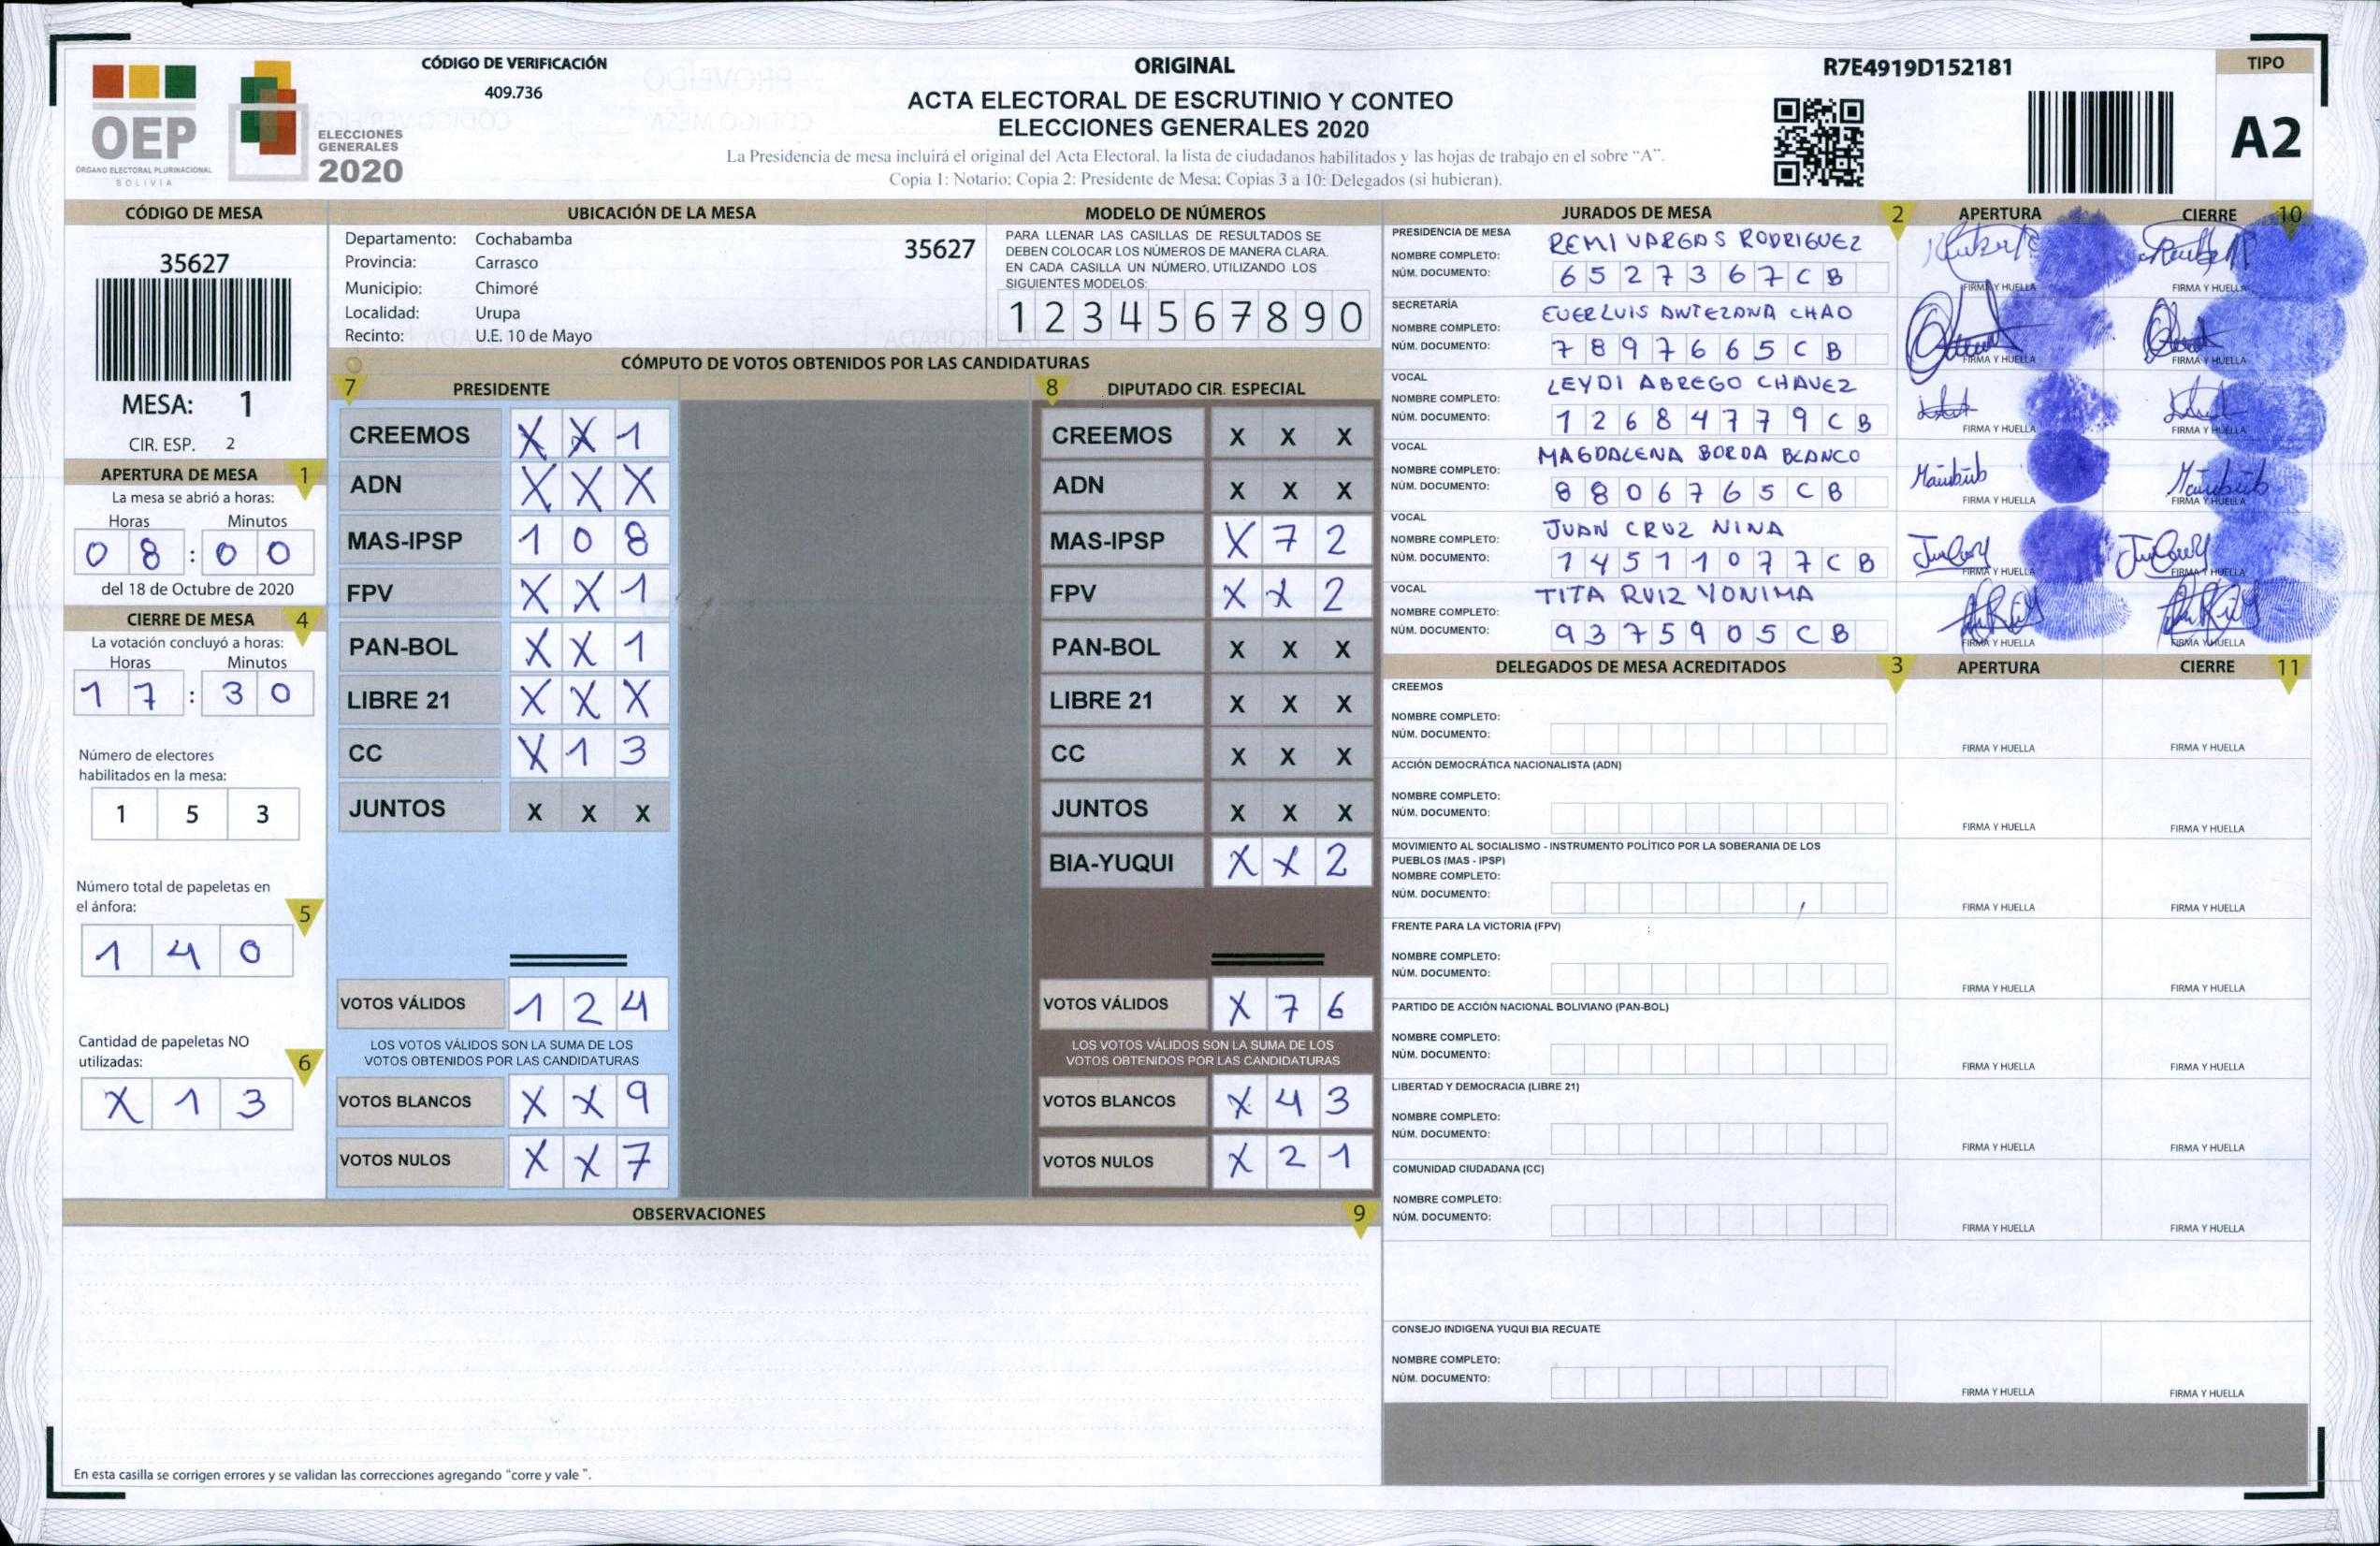 OEP
ÓRGANO ELECTORAL PLURINACIONAL
BOLIVIA
ELECCIONES
GENERALES
2020
CÓDIGO DE VERIFICACIÓN
409.736
ORIGINAL
ACTA ELECTORAL DE ESCRUTINIO Y CONTEO
ELECCIONES GENERALES 2020
La Presidencia de mesa incluirá el original del Acta Electoral, la lista de ciudadanos habilitados y las hojas de trabajo en el sobre "A".
Copia 1: Notario; Copia 2: Presidente de Mesa; Copias 3 a 10: Delegados (si hubieran).
R7E4919D152181
TIPO
A2
CÓDIGO DE MESA
35627
MESA: 1
CIR. ESP. 2
APERTURA DE MESA 1
La mesa se abrió a horas:
Horas Minutos
0 8 : 0 0
del 18 de Octubre de 2020
CIERRE DE MESA 4
La votación concluyó a horas:
Horas Minutos
1 7 : 3 0
Número de electores
habilitados en la mesa:
1 5 3
Número total de papeletas en
el ánfora:
5
1 4 0
Cantidad de papeletas NO
utilizadas:
6
X 1 3
UBICACIÓN DE LA MESA
Departamento: Cochabamba
35627
Provincia: Carrasco
Municipio: Chimoré
Localidad: Urupa
Recinto: U.E. 10 de Mayo
MODELO DE NÚMEROS
PARA LLENAR LAS CASILLAS DE RESULTADOS SE
DEBEN COLOCAR LOS NÚMEROS DE MANERA CLARA.
EN CADA CASILLA UN NÚMERO, UTILIZANDO LOS
SIGUIENTES MODELOS:
1 2 3 4 5 6 7 8 9 0
CÓMPUTO DE VOTOS OBTENIDOS POR LAS CANDIDATURAS
7 PRESIDENTE
CREEMOS X X 1
ADN X X X
MAS-IPSP 1 0 8
FPV X X 1
PAN-BOL X X 1
LIBRE 21 X X X
CC X 1 3
JUNTOS X X X
VOTOS VÁLIDOS 1 2 4
LOS VOTOS VÁLIDOS SON LA SUMA DE LOS
VOTOS OBTENIDOS POR LAS CANDIDATURAS
VOTOS BLANCOS X X 9
VOTOS NULOS X X 7
8 DIPUTADO CIR. ESPECIAL
CREEMOS X X X
ADN X X X
MAS-IPSP X 7 2
FPV X X 2
PAN-BOL X X X
LIBRE 21 X X X
CC X X X
JUNTOS X X X
BIA-YUQUI X X 2
VOTOS VÁLIDOS X 7 6
LOS VOTOS VÁLIDOS SON LA SUMA DE LOS
VOTOS OBTENIDOS POR LAS CANDIDATURAS
VOTOS BLANCOS X 4 3
VOTOS NULOS X 2 1
OBSERVACIONES 9
En esta casilla se corrigen errores y se validan las correcciones agregando "corre y vale ".
JURADOS DE MESA 2 APERTURA CIERRE 10
PRESIDENCIA DE MESA
NOMBRE COMPLETO: REMI VARGAS RODRIGUEZ
NÚM. DOCUMENTO: 6 5 2 7 3 6 7 C B
FIRMA Y HUELLA FIRMA Y HUELLA
SECRETARÍA
NOMBRE COMPLETO: EVERLUIS ANTEZANA CHAO
NÚM. DOCUMENTO: 7 8 9 7 6 6 5 C B
FIRMA Y HUELLA FIRMA Y HUELLA
VOCAL
NOMBRE COMPLETO: LEYDI ABREGO CHAVEZ
NÚM. DOCUMENTO: 1 2 6 8 4 7 7 9 C B
FIRMA Y HUELLA FIRMA Y HUELLA
VOCAL
NOMBRE COMPLETO: MAGDALENA BORDA BLANCO
NÚM. DOCUMENTO: 8 8 0 6 7 6 5 C B
FIRMA Y HUELLA FIRMA Y HUELLA
VOCAL
NOMBRE COMPLETO: JUAN CRUZ NINA
NÚM. DOCUMENTO: 1 4 5 1 1 0 7 7 C B
FIRMA Y HUELLA FIRMA Y HUELLA
VOCAL
NOMBRE COMPLETO: TITA RUIZ YONIMA
NÚM. DOCUMENTO: 9 3 7 5 9 0 5 C B
FIRMA Y HUELLA FIRMA Y HUELLA
DELEGADOS DE MESA ACREDITADOS 3 APERTURA CIERRE 11
CREEMOS
NOMBRE COMPLETO:
NÚM. DOCUMENTO:
FIRMA Y HUELLA FIRMA Y HUELLA
ACCIÓN DEMOCRÁTICA NACIONALISTA (ADN)
NOMBRE COMPLETO:
NÚM. DOCUMENTO:
FIRMA Y HUELLA FIRMA Y HUELLA
MOVIMIENTO AL SOCIALISMO - INSTRUMENTO POLÍTICO POR LA SOBERANIA DE LOS
PUEBLOS (MAS - IPSP)
NOMBRE COMPLETO:
NÚM. DOCUMENTO:
FIRMA Y HUELLA FIRMA Y HUELLA
FRENTE PARA LA VICTORIA (FPV)
NOMBRE COMPLETO:
NÚM. DOCUMENTO:
FIRMA Y HUELLA FIRMA Y HUELLA
PARTIDO DE ACCIÓN NACIONAL BOLIVIANO (PAN-BOL)
NOMBRE COMPLETO:
NÚM. DOCUMENTO:
FIRMA Y HUELLA FIRMA Y HUELLA
LIBERTAD Y DEMOCRACIA (LIBRE 21)
NOMBRE COMPLETO:
NÚM. DOCUMENTO:
FIRMA Y HUELLA FIRMA Y HUELLA
COMUNIDAD CIUDADANA (CC)
NOMBRE COMPLETO:
NÚM. DOCUMENTO:
FIRMA Y HUELLA FIRMA Y HUELLA
CONSEJO INDIGENA YUQUI BIA RECUATE
NOMBRE COMPLETO:
NÚM. DOCUMENTO:
FIRMA Y HUELLA FIRMA Y HUELLA